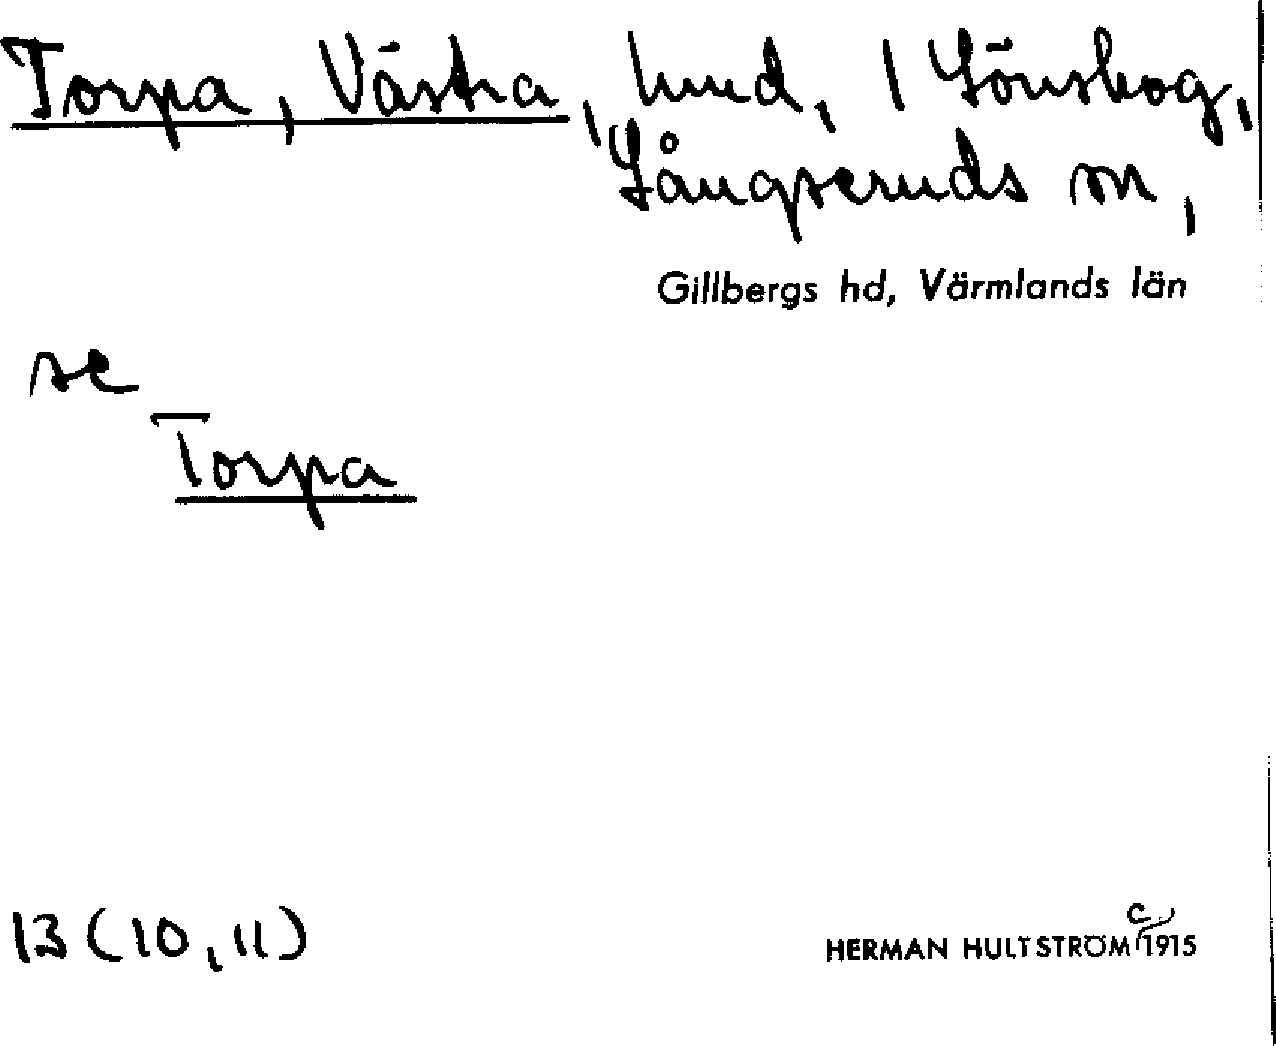 Torpa, Västra, hmd, 1 Lönskog,
Långseruds sn,
Gillbergs hd, Värmlands län
se
Torpa
13 (10, 11)
HERMAN HULTSTRÖM c 1915